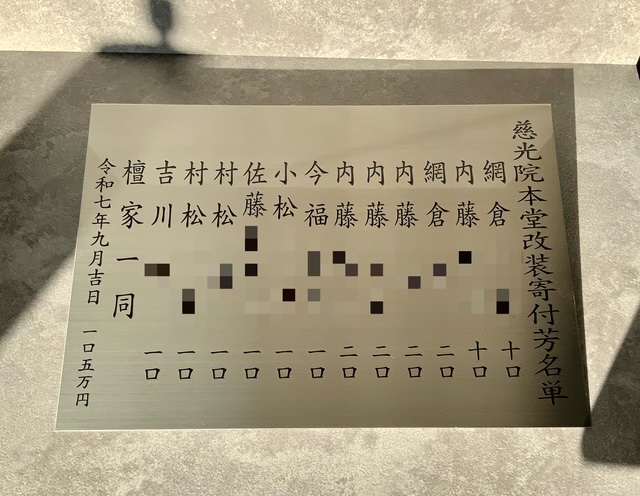 慈光院本堂改装寄付芳名単
網倉 十口
内藤 十口
網倉 二口
内藤 二口
内藤 二口
内藤 二口
今福 一口
小松 一口
佐藤 一口
村松 一口
村松 一口
吉川 一口
檀家一同
令和七年九月吉日 一口五万円